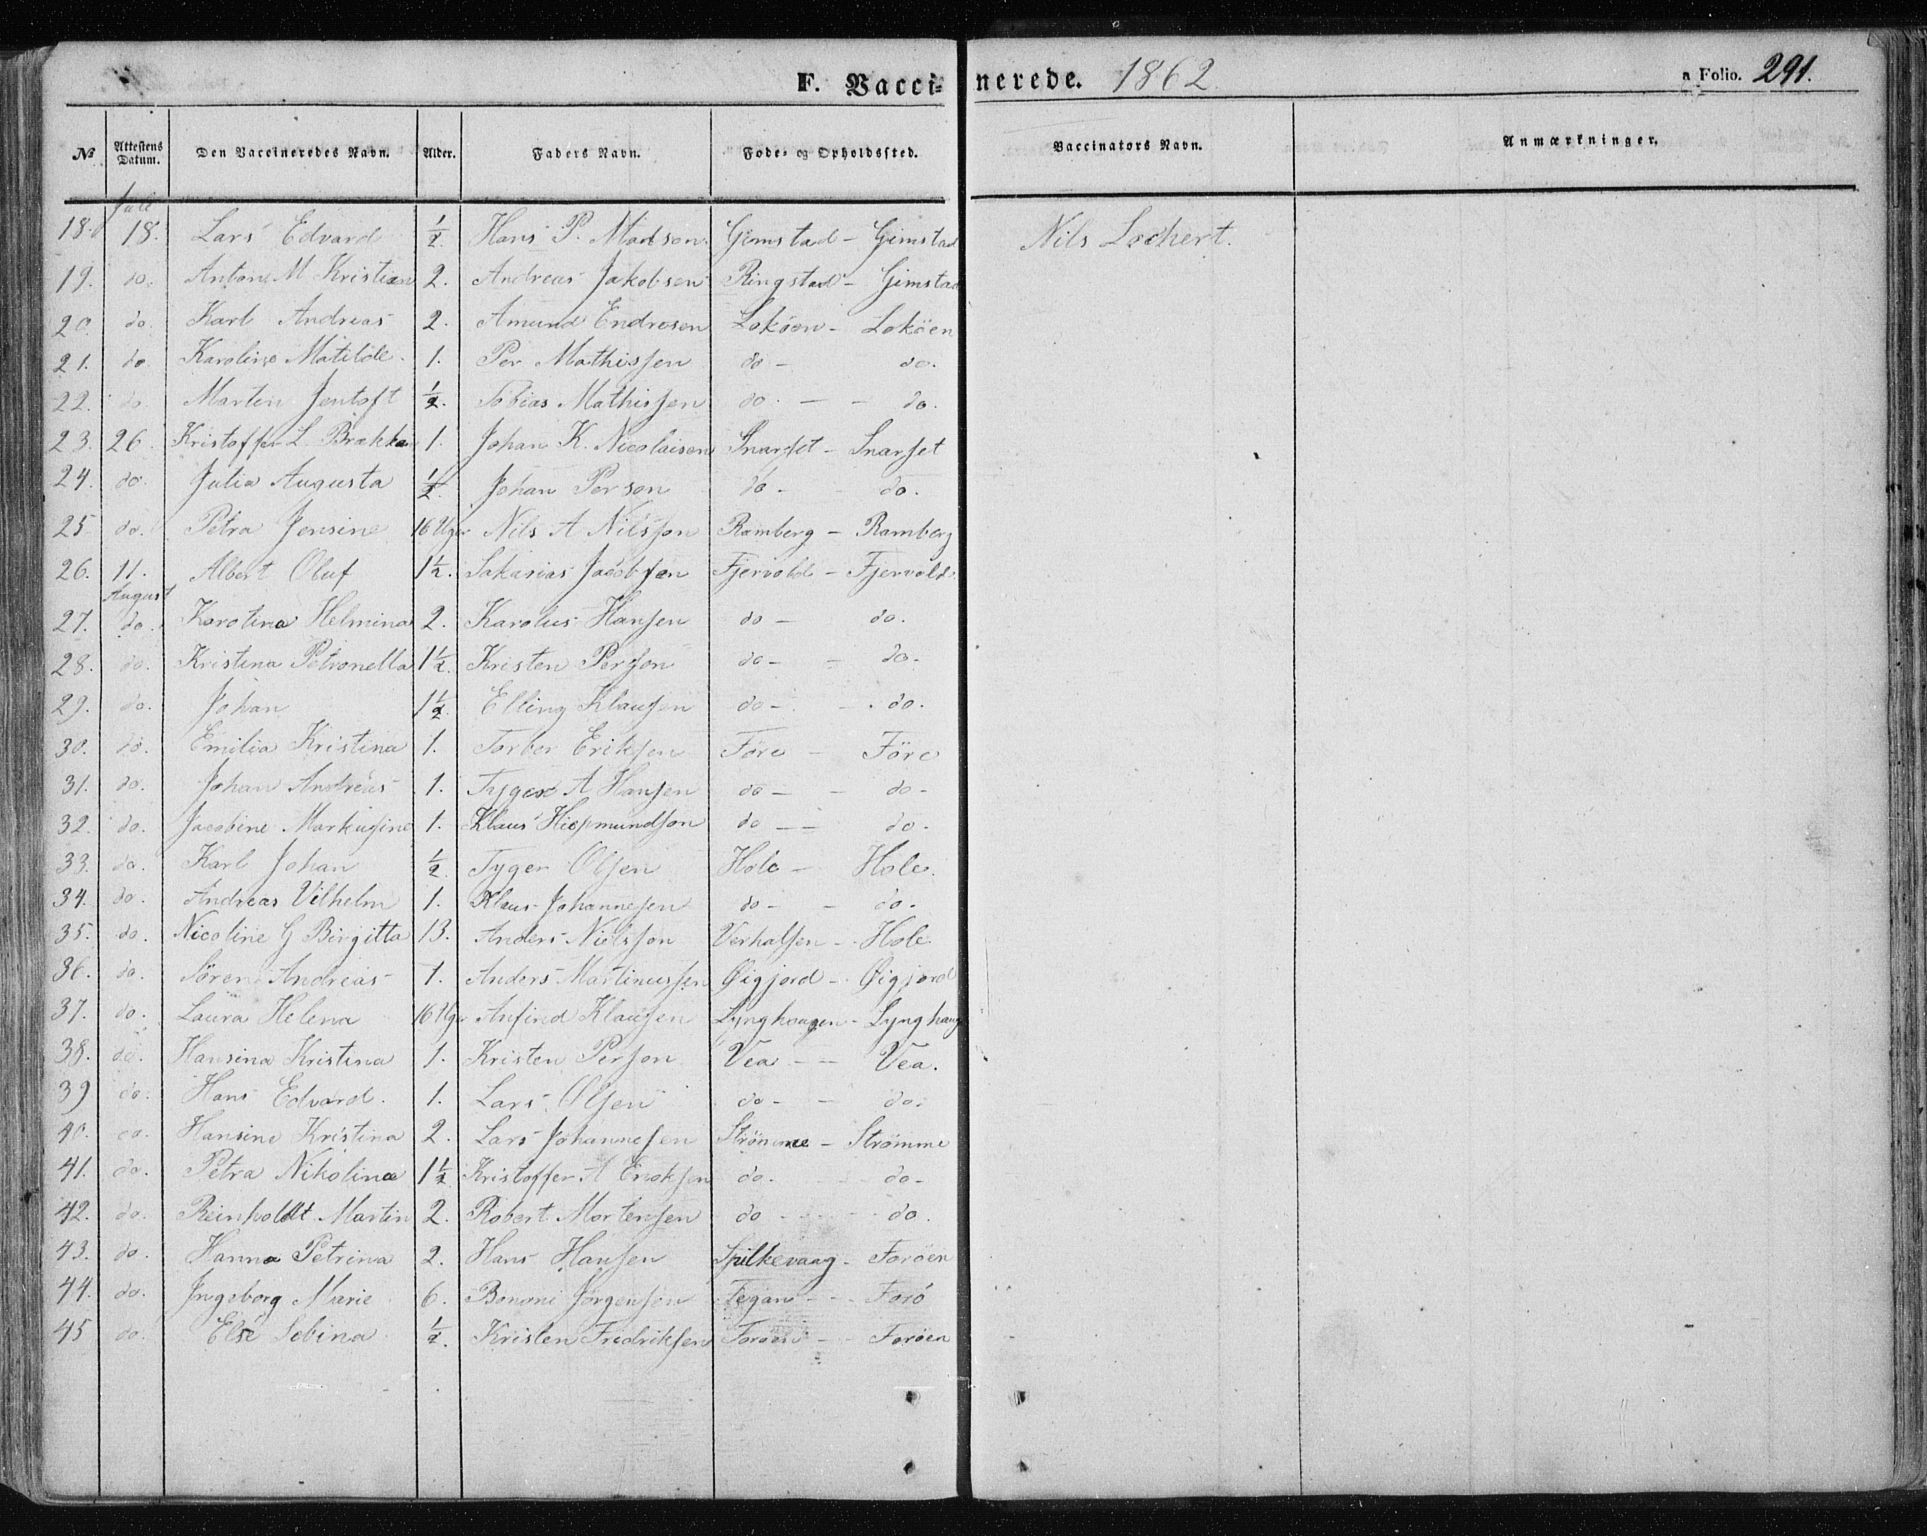 F. Vaccinerede. 1862 a Folio. 291.
№ Attestens Datum. Den Vaccineredes Navn. Alder. Faders Navn. Føde- og Opholdssted. Vaccinators Navn. Anmærkninger.
Juli
18. 18. Lars Edvard ½ Hans P. Madsen Gimstad - Gimstad Nils Lochert.
19. do. Anton M Kristian 2. Andreas Jakobsen Ringstad - Gimstad
20. do. Karl Andreas 2. Amund Endresen Lokøen - Lokøen
21. do. Karoline Matilde. 1. Per Mathissen do - do.
22. do Martin Jentoft ½. Tobias Mathissen do. - - do.
23. 26. Kristoffer L. Brekke 1. Johan K. Nicolaisen Snarset - Snarset
24. do. Julia Augusta ½. Johan Person do - - do.
25 do. Petra Jensine 16 Uger Nils A Nilsson Ramberg - Ramberg
26. 11. Albert Oluf 1½. Sakarias Jacobsen Fjervold - Fjervold
August
27. do. Karolina Helmina 2. Karolus Hansen do - do.
28. do. Kristina Petronella 1½. Kristen Person do - - do-
29. do. Johan 1½. Elling Klausen do - - . do.
30. do. Emilia Kristina 1. Torber Eriksen Føre - Føre
31. do. Johan Andreas 1. Tyger A Hansen do - - do-
32. do. Jacobine Markusine 1. Klaus do - - do.
33. do. Karl Johan ½. Tyger Olsen Hole - Hole.
34. do. Andreas Vilhelm 1. Klaus Johannesen do - - do.
35. do. Nicoline G Birgitta 13. Anders Nielsson Verhalsen - Hole
36. do. Søren Andreas 1. Anders Martinussen Øigjord - Øigjord
37. do. Laura Helena 16 Uger Anfind Klausen Lynghaugen - Lynghaug
38. do. Hansina Kristina 1. Kristen Person Vea - - Vea.
39 do. Hans Edvard. 1. Lars Olsen do - - do.
40. do. Hansine Kristina 2. Lars Johannesen Strømme - Strømme
41. do. Petra Nikolina 1½. Kristoffer A Eriksen do. do-
42. do. Reinholdt Martin 2. Robert Mortensen do - - do.
43. do. Hanna Petrina 2. Hans Hansen Spilkevaag - Forøen
44. do. Ingeborg Marie 6. Benoni Jørgensen Tegan - - Forø
45 do. Else Sebina ½. Kristen Fredriksen Forøen - Forøen